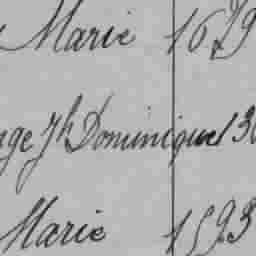 Marie 1629
ge Jh Dominique 13
Marie 1593